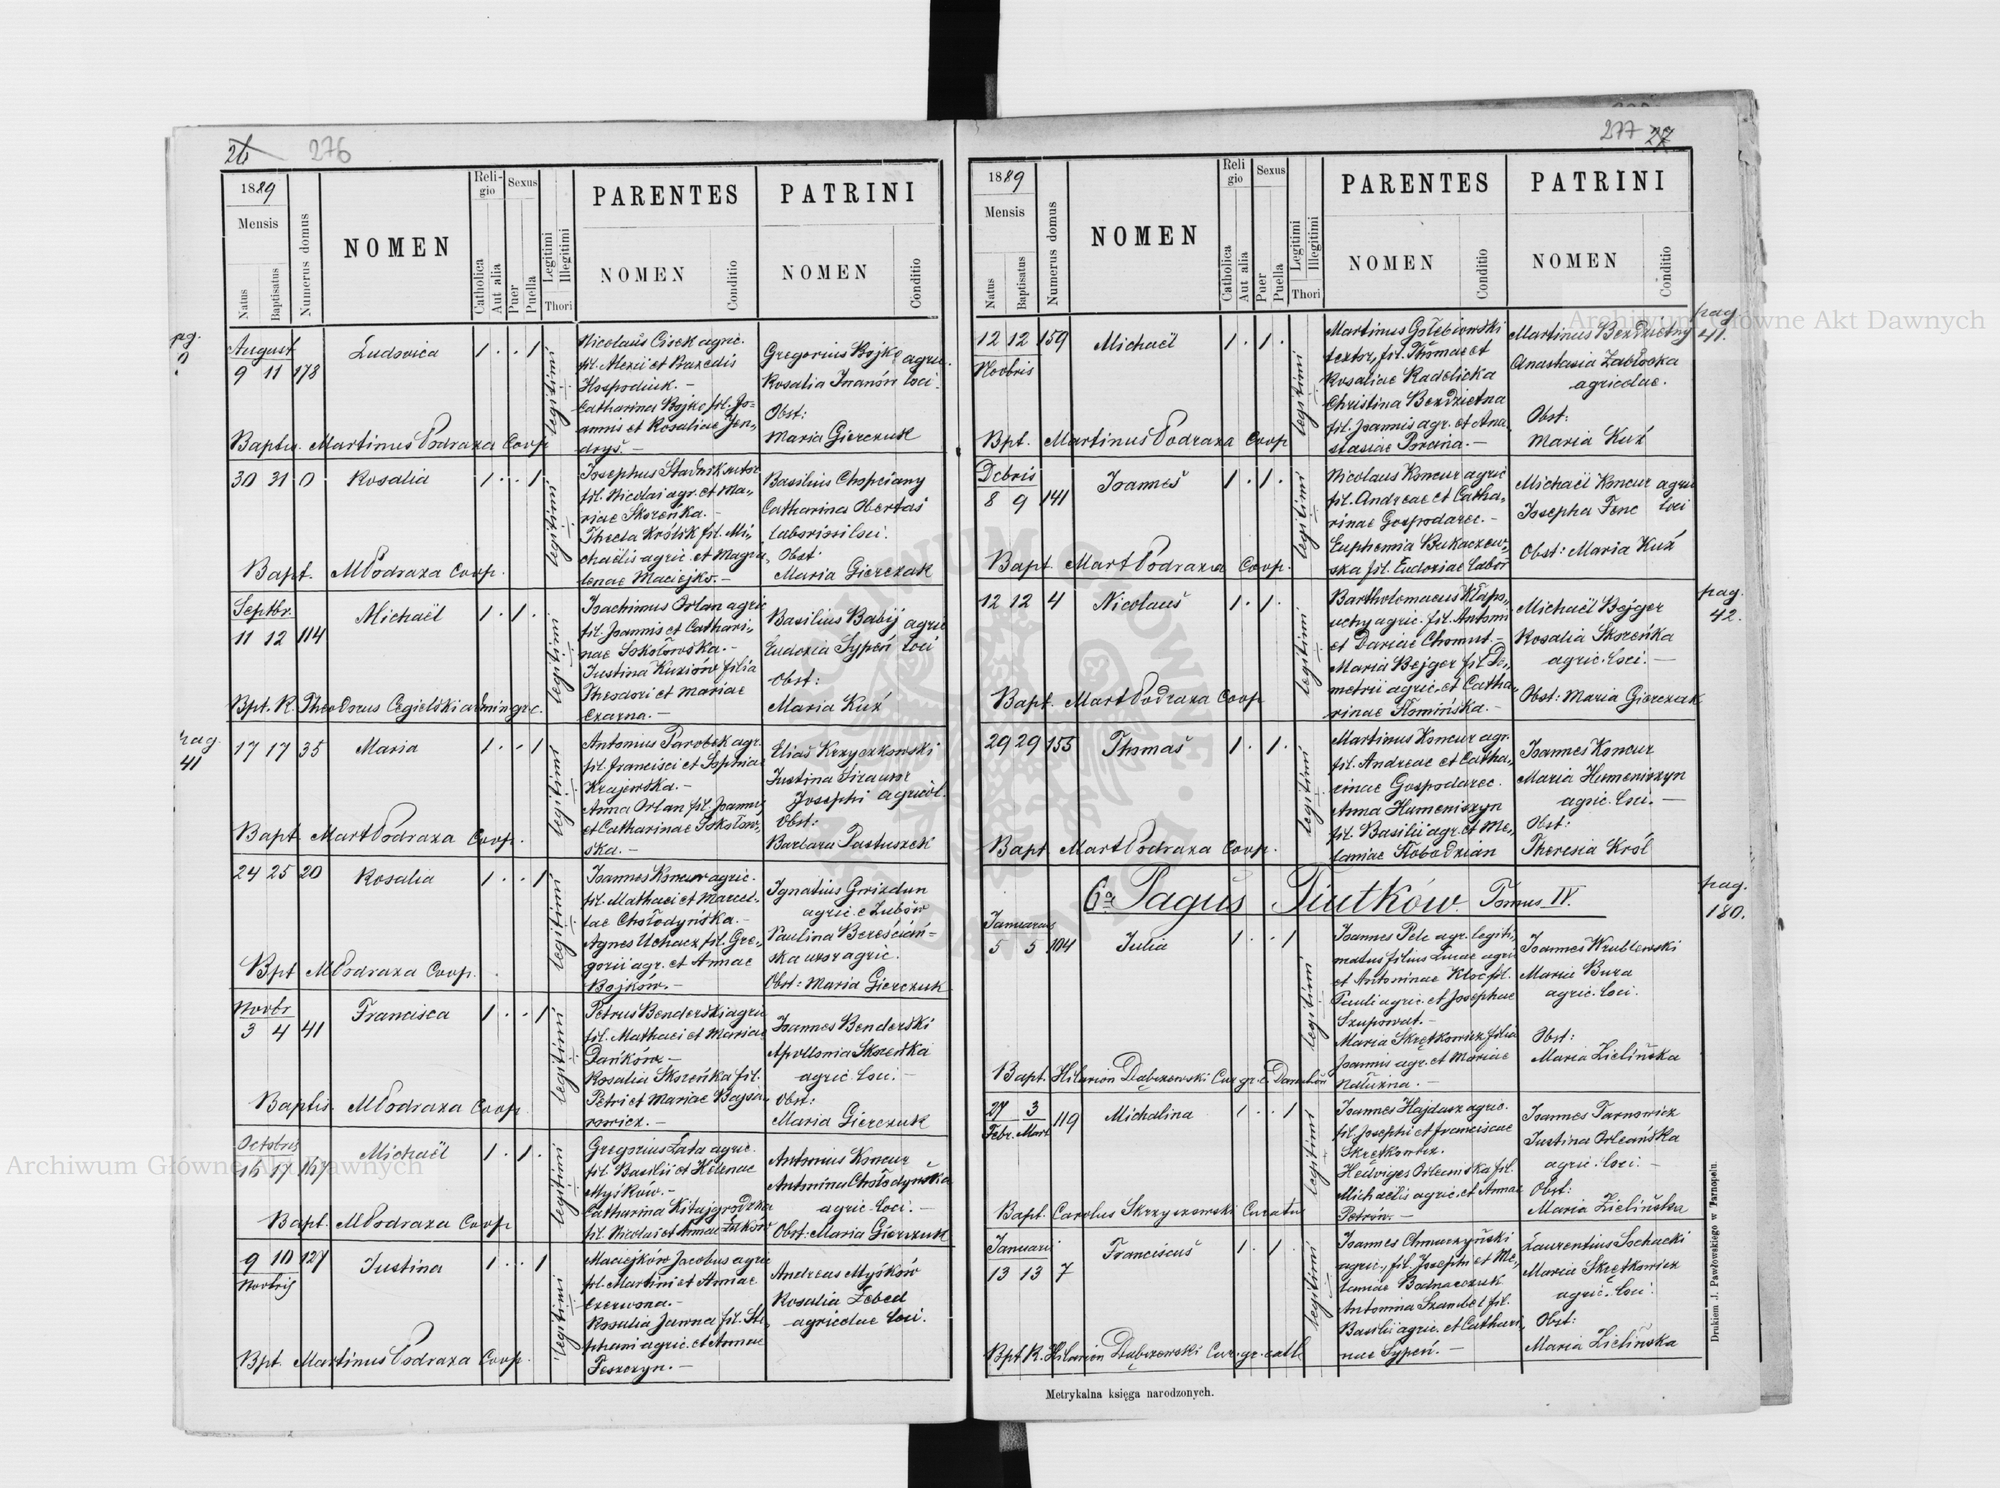 26 276
1889
Mensis
Natus
Baptisatus
Numerus domus
NOMEN
Religio
Catholica
Aut alia
Sexus
Puer
Puella
Legitimi
Illegitimi
Thori
PARENTES
NOMEN
Conditio
PATRINI
NOMEN
Conditio
pag.
August
9 11 178 Ludovica 1 . . 1 legitimi
Nicolaus Cisek agric.
fil. Alexii et Praxedis
Hospodiuk. —
Catharina Bojko fil. Jo-
annis et Rosaliae
Gregorius Bojko agric.
Rosalia Iwanów loci.
Obst:
Maria Gierczuk
Baptis. Martinus Podraza Coop
30 31 0 Rosalia 1 . . 1 legitimi
Josephus Stadnik sutor
fil. Nicolai agr. et Ma-
riae Skoreńka. —
Thecla Królik fil. Mi-
chaelis agric. et Magda-
lenae Maciejko. —
Basilius Chopciany
Catharina Obertas
laboriosi loci.
Obst:
Maria Gierczuk
Bapt. MPodraza Coop.
Septbr.
11 12 114 Michaël 1 . 1 . legitimi
Joachimus Orlan agric
fil. Joannis et Cathari-
nae Sokołowska. —
Justina Kuziów filia
Theodori et Mariae
Czarna. —
Basilius Babij agric
Eudoxia Sypeń loci
Obst:
Maria Kuź
Bpt. R. Theodorus Cegielski admin gr. c.
pag.
41
17 17 35 Maria 1 . . 1 legitimi
Antonius Parobek agr.
fil. Francisci et Sophiae
Krajewska. —
Anna Orlan fil. Joannis
et Catharinae Sokołow-
ska. —
Elias Krzyczkowski
Justina uxor
Josephi agricol.
Obst:
Barbara Pastuszek
Bapt MartPodraza Coop.
24 25 20 Rosalia 1 . . 1 legitimi
Joannes Koncur agric.
fil. Mathaei et Marcel-
lae Chołodyńska. —
Agnes Uchacz fil. Gre-
gorii agr. et Annae
Bojków. —
Ignatius Gwizdun
agric. e Zubów
Paulina Bereściań-
ska uxor agric.
Obst: Maria Gierczuk
Bpt MPodraza Coop.
Novbr
3 4 41 Francisca 1 . . 1 legitimi
Petrus Benderski agric
fil. Mathaei et Mariae
Dańków —
Rosalia Skoreńka fil.
Petri et Mariae Bajsa-
rowicz. —
Joannes Benderski
Apollonia Skoreńka
agric. loci. —
Obst:
Maria Gierczuk
Baptis. MPodraza Coop
Octobris
16 17 147 Michaël 1 . 1 . legitimi
Gregorius Łata agric.
fil. Basilii et Helenae
Myśków. —
Catharina Kitajgrodzka
fil. Nicolai et Annae
Antonius Koncur
Antonina Chołodyńska
agric. loci. —
Obst: Maria Gierczuk
Bapt. MPodraza Coop
9 10 127 Justina 1 . . 1 legitimi
Novbris
Maciejków Jacobus agric
fil. Martini et Annae
Czerwona. —
Rosalia Jawna fil. Ste-
phani agric. et Annae
Peszczyn. —
Andreas Myśków
Rosalia Żebed
agricolae loci.
Bpt. Martinus Podraza Coop.
277 27
1889
Mensis
Natus
Baptisatus
Numerus domus
NOMEN
Religio
Catholica
Aut alia
Sexus
Puer
Puella
Legitimi
Illegitimi
Thori
PARENTES
NOMEN
Conditio
PATRINI
NOMEN
Conditio
pag
41.
12 12 159 Michaël 1 . 1 . legitimi
Novbris
Martinus Gołębiowski
textor, fil. Thomae et
Rosaliae Radelicka
Christina Bezdzietna
fil. Joannis agr. et Ana-
stasiae —
Martinus Bezdzietny
Anastasia Zabłocka
agricolae.
Obst:
Maria Kuź
Bpt. Martinus Podraza Coop
Dcbris
8 9 141 Joannes 1 . 1 . legitimi
Nicolaus Koncur agric
fil. Andreae et Catha-
rinae Gospodarec. —
Euphemia Bukaczew-
ska fil. Eudoxiae labor
Michaël Koncur agric
Josepha Fenc loci
Obst: Maria Kuź
Bapt MartPodraza Coop.
pag.
42.
12 12 4 Nicolaus 1 . 1 . legitimi
Bartholomaeus Kłapo-
uchy agric. fil. Antonii
et Dariae Chomut. —
Maria Bejger fil De-
metrii agric. et Catha-
rinae Słomińska. —
Michaël Bejger
Rosalia Skoreńka
agric. loci. —
Obst: Maria Gierczak
Bapt. MartPodraza Coop
29 29 155 Thomas 1 . 1 . legitimi
Martinus Koncur agr.
fil. Andreae et Catha-
rinae Gospodarec.
Anna Humeniszyn
fil. Basilii agr. et Me-
laniae Słobodzian
Joannes Koncur
Maria Humeniszyn
agric. loci. —
Obst:
Theresia Król
Bapt MartPodraza Coop.
6a Pagus Piutków. Tomus IV.
pag.
180.
Januarius
5 5 104 Julia 1 . . 1 legitimi
Joannes Pelc agr. legiti-
matus filius Lucae agric
et Antoninae Kloc fil.
Pauli agric. et Josephae
Szupowat. —
Maria Skrętkowicz filia
Joannis agr. et Mariae
Natużna. —
Joannes Wrublewski
Maria Bura
agric. loci.
Obst:
Maria Zielińska
Bapt. Hilarion Dąbrzewski Cur. gr. c. Darachów
27 3 119 Michalina 1 . . 1 legitimi
Febr. Mart
Joannes Hajdasz agric.
fil. Josephi et Franciscae
Skrętkowicz.
Hedviges Orlemska fil.
Michaelis agric. et Annae
Petrów. —
Joannes Tarnowicz
Justina Orleańska
agric. loci. —
Obst:
Maria Zielińska
Bapt. Carolus Skrzyszowski Curatus
Januarii
13 13 7 Franciscus 1 . 1 . legitimi
Joannes Chmurzyński
agric., fil. Josephi et Me-
laniae Bodnarczuk
Antonina Szambel fil.
Basilii agric. et Cathari-
nae Sypeń. —
Laurentius Sochacki
Maria Skrętkowicz
agric. loci.
Obst:
Maria Zielińska
Bpt R. Hilarion Dąbrzewski Cur. gr. cath
Metrykalna księga narodzonych.
Drukiem J. Pawłowskiego w Tarnopolu.
Archiwum Główne Akt Dawnych
Archiwum Główne Akt Dawnych
ARCHIWUM GŁÓWNE